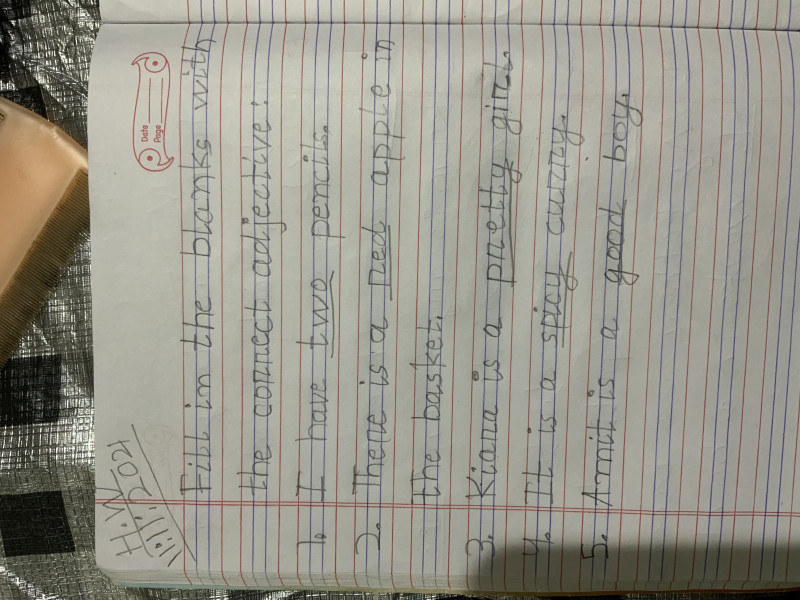 H.W
11.11.2021
Date
Page
Fill in the blanks with
the correct adjective:
1. I have two pencils.
2. There is a red apple in
the basket.
3. Kiara is a pretty girl.
4. It is a spicy curry.
5. Amit is a good boy.